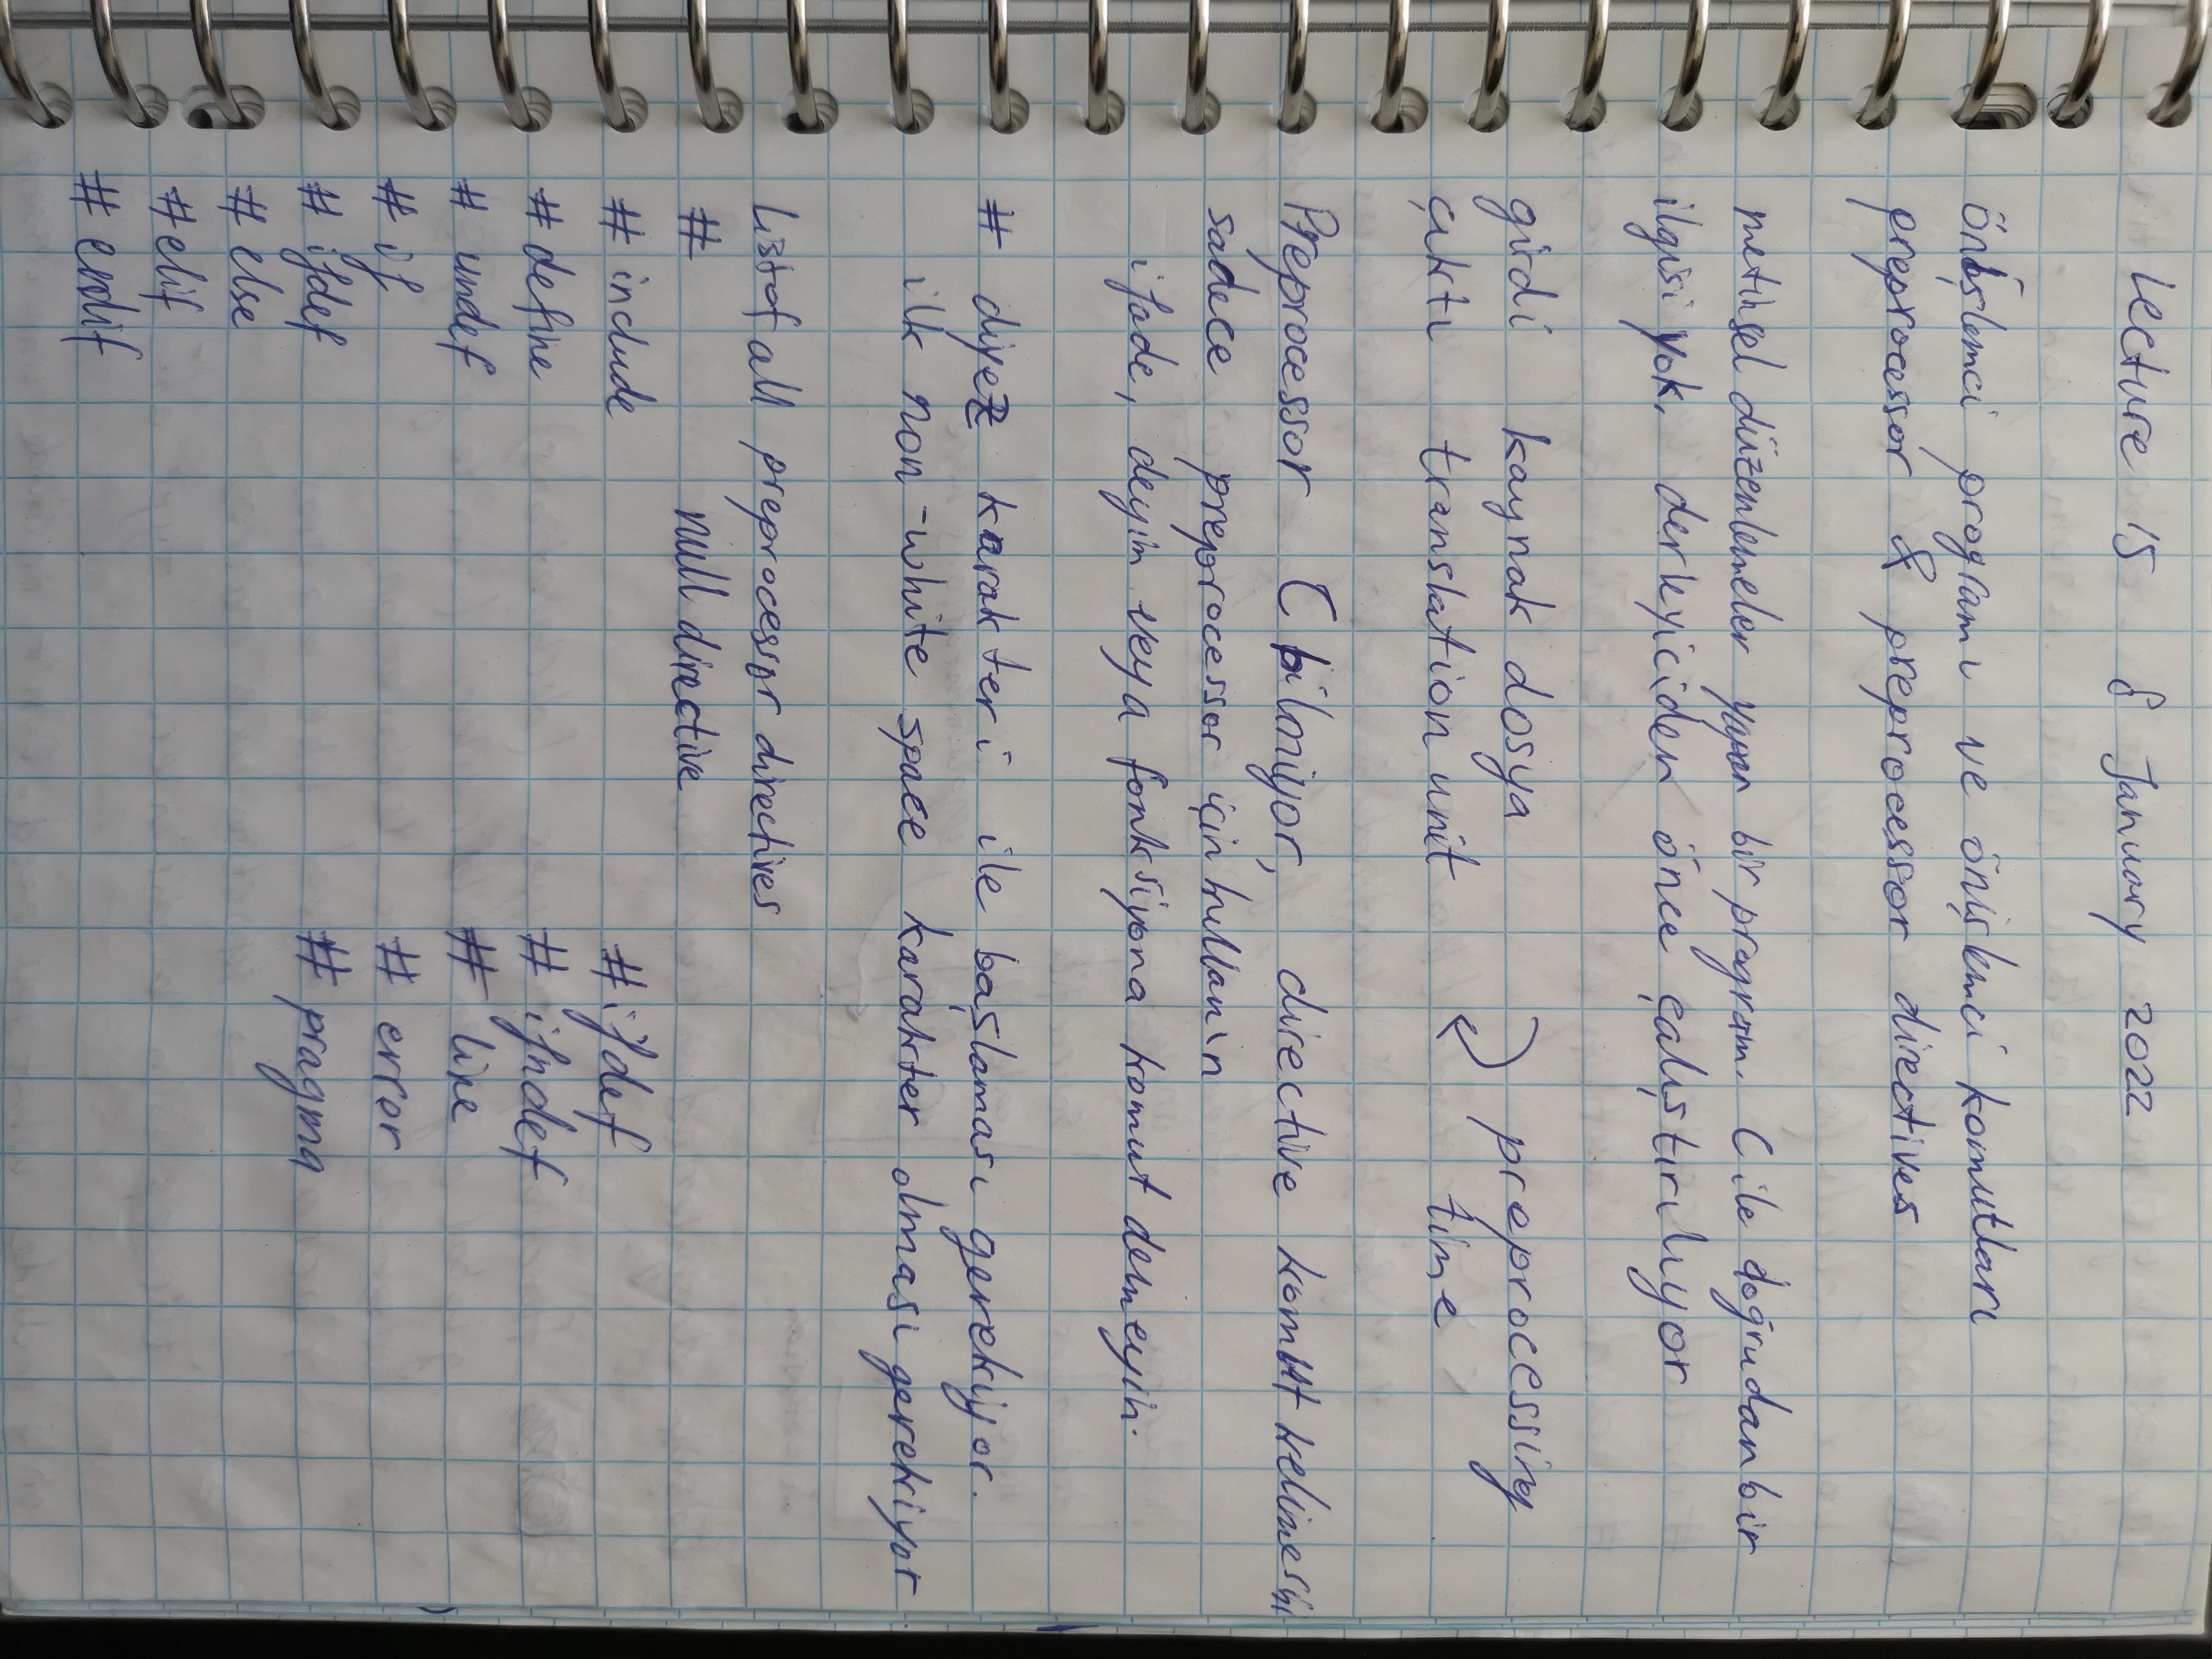 Lecture 15 8 January 2022
önişlemci programı ve önişlemci komutları
preprocessor & preprocessor directives
metinsel düzenlemeler yapan bir program. C ile doğrudan bir
ilgisi yok. derleyiciden önce çalıştırılıyor
girdi kaynak dosya preprocessing
çıktı translation unit time
Preprocessor C bilmiyor, directive komut kelimesini
sadece preprocessor için kullanın
ifade, deyim veya fonksiyona komut demeyin.
# diyez karakteri ile başlaması gerekiyor.
ilk non-white space karakter olması gerekiyor
List of all preprocessor directives
# null directive
# include
# define
# undef
# if
# ifdef
# else
#elif
# endif
# ifdef
# ifndef
# line
# error
# pragma